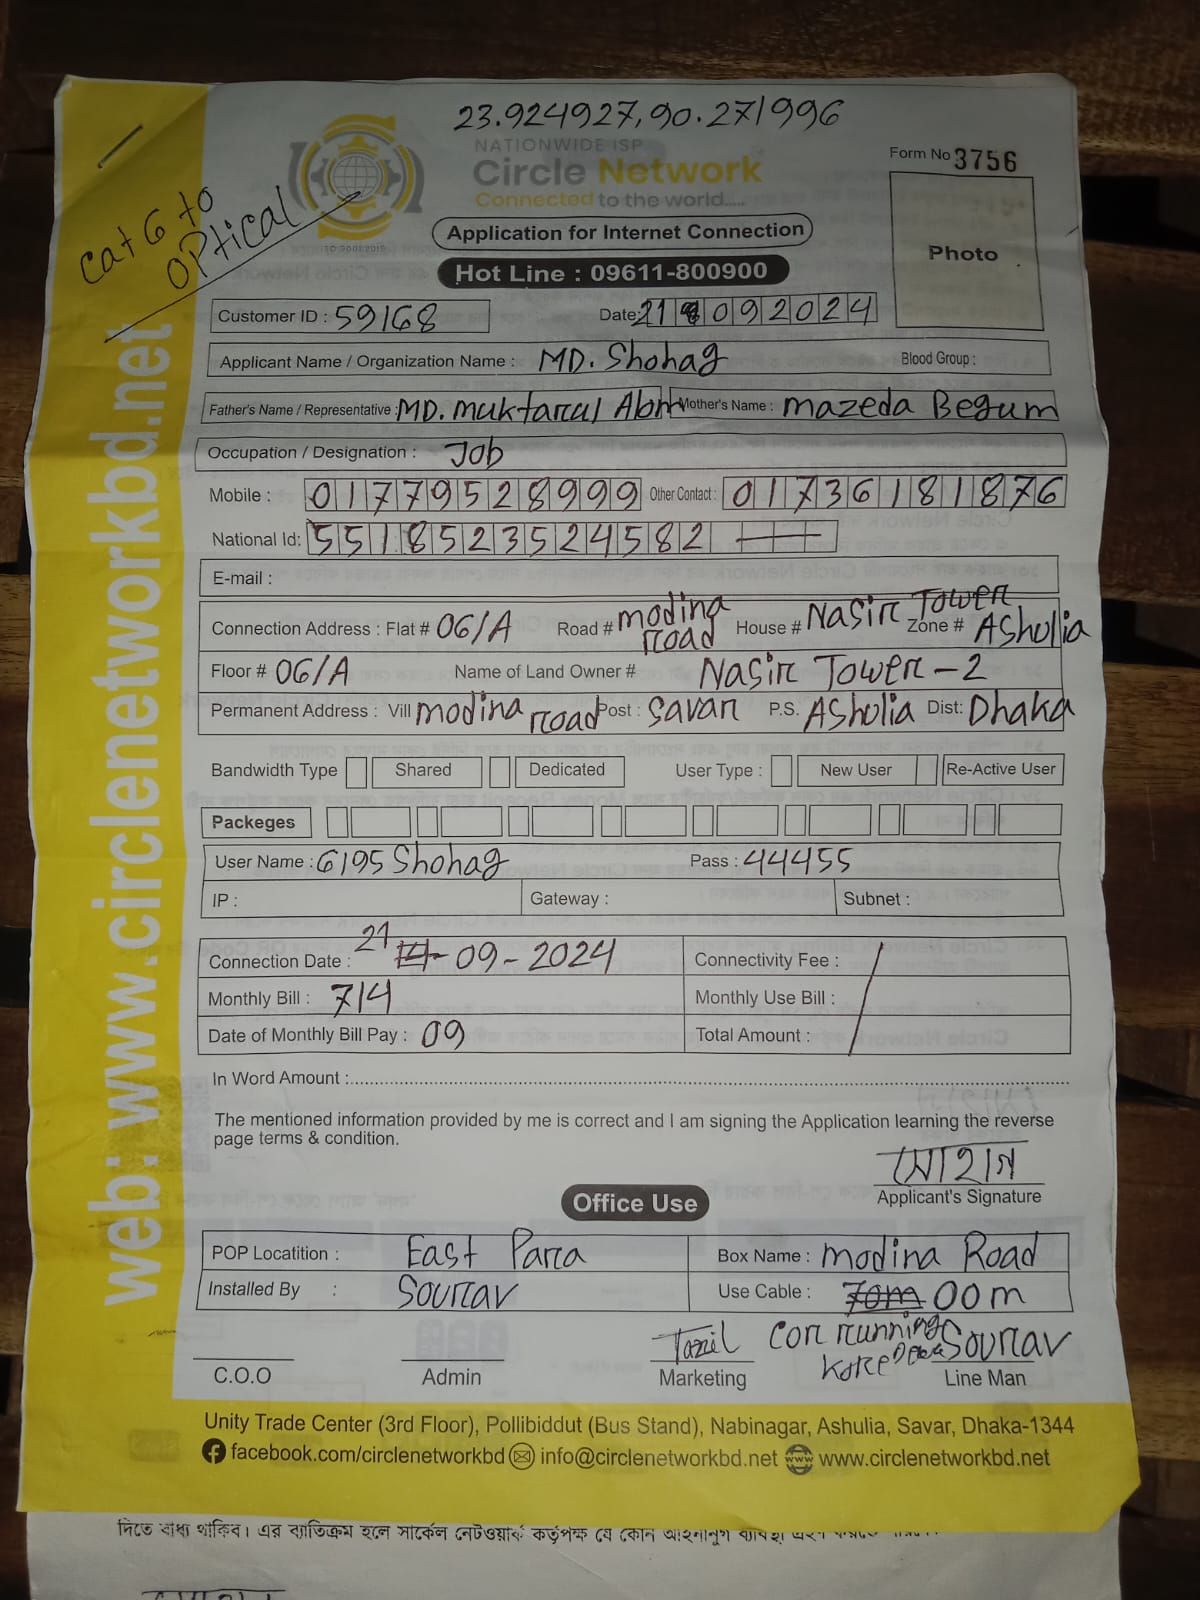 23.924927, 90.271996
NATIONWIDE ISP
Circle Network
Connected to the world.....
Form No 3756
Cat 6 to
OPtical
Photo
Application for Internet Connection
Hot Line : 09611-800900
Customer ID : 59168 Date: 21 092024
Applicant Name / Organization Name : MD. Shohag Blood Group :
Father's Name / Representative : MD. muktarul Abm Mother's Name : mazeda Begum
Occupation / Designation : Job
Mobile : 01779528999 Other Contact : 01736181876
National Id: 5518523524582
E-mail :
Connection Address : Flat # 06/A Road # modina road House # Nasir Tower Zone # Ashulia
Floor # 06/A Name of Land Owner # Nasir Tower - 2
Permanent Address : Vill modina road Post : Savar P.S. Ashulia Dist: Dhaka
Bandwidth Type Shared Dedicated User Type : New User Re-Active User
Packeges
User Name : 6195 Shohag Pass : 44455
IP : Gateway : Subnet :
Connection Date : 21 14-09-2024 Connectivity Fee :
Monthly Bill : 714 Monthly Use Bill :
Date of Monthly Bill Pay : 09 Total Amount :
In Word Amount :
The mentioned information provided by me is correct and I am signing the Application learning the reverse
page terms & condition.
সোহাগ
Applicant's Signature
Office Use
POP Locatition : East Para Box Name : modina Road
Installed By : Sourav Use Cable : 70m 00m
Tamil Con running Sourav
Kore
C.O.O Admin Marketing Line Man
Unity Trade Center (3rd Floor), Pollibiddut (Bus Stand), Nabinagar, Ashulia, Savar, Dhaka-1344
facebook.com/circlenetworkbd info@circlenetworkbd.net www.circlenetworkbd.net
web: www.circlenetworkbd.net
দিতে বাধ্য থাকিব। এর ব্যতিক্রম হলে সার্কেল নেটওয়ার্ক কর্তৃপক্ষ যে কোন আইনানুগ ব্যবস্থা